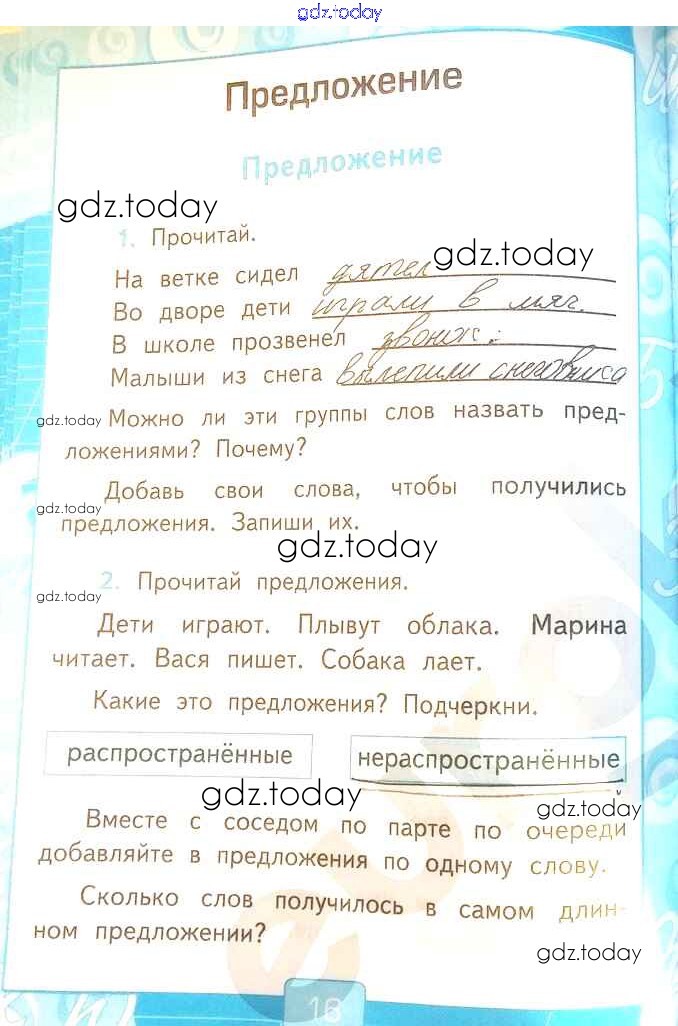 gdz.today
Предложение
Предложение
gdz.today
1. Прочитай.
gdz.today
На ветке сидел дятел
Во дворе дети играли в мяч.
В школе прозвенел звонок.
Малыши из снега вылепили снеговика
gdz.today
Можно ли эти группы слов назвать пред-
ложениями? Почему?
Добавь свои слова, чтобы получились
gdz.today
предложения. Запиши их.
gdz.today
2. Прочитай предложения.
gdz.today
Дети играют. Плывут облака. Марина
читает. Вася пишет. Собака лает.
Какие это предложения? Подчеркни.
распространённые нераспространённые
gdz.today
gdz.today
Вместе с соседом по парте по очереди
добавляйте в предложения по одному слову.
Сколько слов получилось в самом длин-
ном предложении?
gdz.today
16